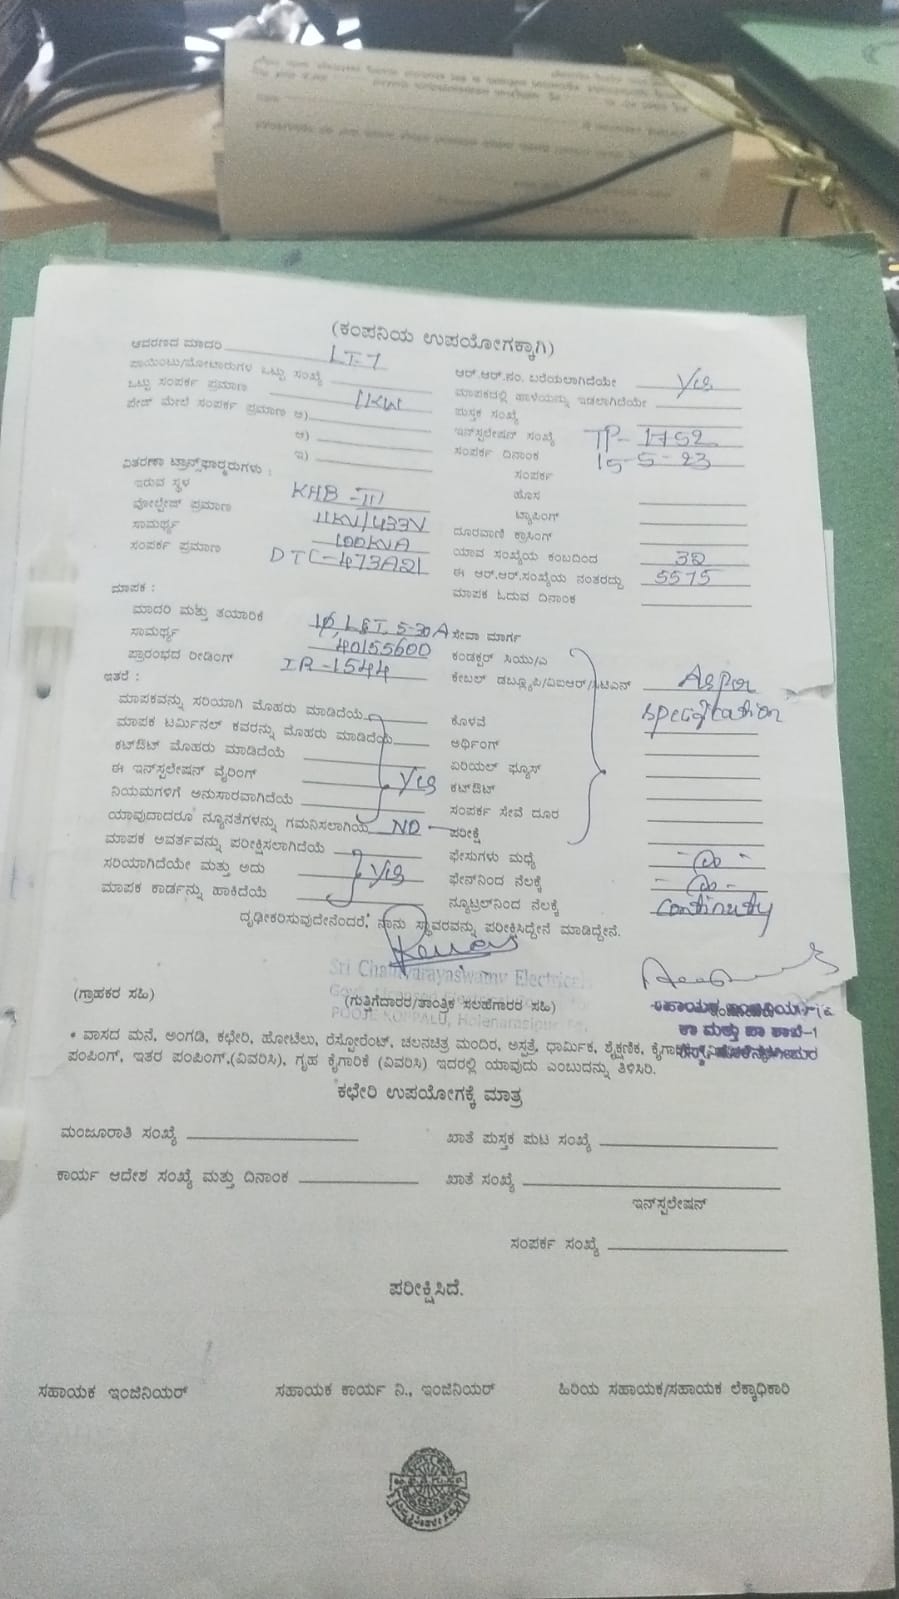 (ಕಂಪನಿಯ ಉಪಯೋಗಕ್ಕಾಗಿ)
ಆವರಣದ ಮಾದರಿ LT-1
ಪಾಯಿಂಟು/ಮೋಟಾರುಗಳ ಒಟ್ಟು ಸಂಖ್ಯೆ
ಒಟ್ಟು ಸಂಪರ್ಕ ಪ್ರಮಾಣ 1KW
ಪೇಜ್ ಮೇಲೆ ಸಂಪರ್ಕ ಪ್ರಮಾಣ ಅ)
ಆ)
ಇ)
ವಿತರಣಾ ಟ್ರಾನ್ಸ್‌ಫಾರ್ಮರುಗಳು :
ಇರುವ ಸ್ಥಳ KHB-III
ವೋಲ್ಟೇಜ್ ಪ್ರಮಾಣ 11KV/433V
ಸಾಮರ್ಥ್ಯ 100KVA
ಸಂಪರ್ಕ ಪ್ರಮಾಣ DTC-473A21
ಮಾಪಕ :
ಮಾದರಿ ಮತ್ತು ತಯಾರಿಕೆ 1φ, L&T, 5-30A
ಸಾಮರ್ಥ್ಯ 40155600
ಪ್ರಾರಂಭದ ರೀಡಿಂಗ್ IR-1544
ಇತರೆ :
ಮಾಪಕವನ್ನು ಸರಿಯಾಗಿ ಮೊಹರು ಮಾಡಿದೆಯೆ
ಮಾಪಕ ಟರ್ಮಿನಲ್ ಕವರನ್ನು ಮೊಹರು ಮಾಡಿದೆಯೆ
ಕಟ್‌ಔಟ್ ಮೊಹರು ಮಾಡಿದೆಯೆ
ಈ ಇನ್‌ಸ್ಟಲೇಷನ್ ವೈರಿಂಗ್ Yes
ನಿಯಮಗಳಿಗೆ ಅನುಸಾರವಾಗಿದೆಯೆ
ಯಾವುದಾದರೂ ನ್ಯೂನತೆಗಳನ್ನು ಗಮನಿಸಲಾಗಿಯೆ NO
ಮಾಪಕ ಅವರ್ತವನ್ನು ಪರೀಕ್ಷಿಸಲಾಗಿದೆಯೆ
ಸರಿಯಾಗಿದೆಯೇ ಮತ್ತು ಅದು Yes
ಮಾಪಕ ಕಾರ್ಡನ್ನು ಹಾಕಿದೆಯೆ
ಆರ್.ಆರ್.ನಂ. ಬರೆಯಲಾಗಿದೆಯೇ Yes
ಮಾಪಕದಲ್ಲಿ ಹಾಳೆಯನ್ನು ಇಡಲಾಗಿದೆಯೇ
ಪುಸ್ತಕ ಸಂಖ್ಯೆ
ಇನ್‌ಸ್ಟಲೇಷನ್ ಸಂಖ್ಯೆ TP-1752
ಸಂಪರ್ಕ ದಿನಾಂಕ 15-5-23
ಸಂಪರ್ಕ
ಹೊಸ
ಟ್ಯಾಪಿಂಗ್
ದೂರವಾಣಿ ಕ್ರಾಸಿಂಗ್
ಯಾವ ಸಂಖ್ಯೆಯ ಕಂಬದಿಂದ 32
ಈ ಆರ್.ಆರ್.ಸಂಖ್ಯೆಯ ನಂತರದ್ದು 5575
ಮಾಪಕ ಓದುವ ದಿನಾಂಕ
ಸೇವಾ ಮಾರ್ಗ
ಕಂಡಕ್ಟರ್ ಸಿಯು/ಎ
ಕೇಬಲ್ ಡಬ್ಲ್ಯೂಪಿ/ವಿಐಆರ್/ಸಿಟಿಎನ್ As per
specification
ಕೊಳವೆ
ಅರ್ಥಿಂಗ್
ಏರಿಯಲ್ ಫ್ಯೂಸ್
ಕಟ್‌ಔಟ್
ಸಂಪರ್ಕ ಸೇವೆ ದೂರ
ಪರೀಕ್ಷೆ
ಫೇಸುಗಳು ಮಧ್ಯೆ
ಫೇಸ್‌ನಿಂದ ನೆಲಕ್ಕೆ
ನ್ಯೂಟ್ರಲ್‌ನಿಂದ ನೆಲಕ್ಕೆ continuity
ದೃಢೀಕರಿಸುವುದೇನೆಂದರೆ, ನಾನು ಸ್ಥಾವರವನ್ನು ಪರೀಕ್ಷಿಸಿದ್ದೇನೆ ಮಾಡಿದ್ದೇನೆ.
(ಗ್ರಾಹಕರ ಸಹಿ) (ಗುತ್ತಿಗೆದಾರರ/ತಾಂತ್ರಿಕ ಸಲಹೆಗಾರರ ಸಹಿ)
• ವಾಸದ ಮನೆ, ಅಂಗಡಿ, ಕಛೇರಿ, ಹೋಟೆಲು, ರೆಸ್ಟೋರೆಂಟ್, ಚಲನಚಿತ್ರ ಮಂದಿರ, ಅಸ್ಪತ್ರೆ, ಧಾರ್ಮಿಕ, ಶೈಕ್ಷಣಿಕ,
ಪಂಪಿಂಗ್, ಇತರ ಪಂಪಿಂಗ್,(ವಿವರಿಸಿ), ಗೃಹ ಕೈಗಾರಿಕೆ (ವಿವರಿಸಿ) ಇದರಲ್ಲಿ ಯಾವುದು ಎಂಬುದನ್ನು ತಿಳಿಸಿರಿ.
ಕಛೇರಿ ಉಪಯೋಗಕ್ಕೆ ಮಾತ್ರ
ಮಂಜೂರಾತಿ ಸಂಖ್ಯೆ ಖಾತೆ ಪುಸ್ತಕ ಪುಟ ಸಂಖ್ಯೆ
ಕಾರ್ಯ ಆದೇಶ ಸಂಖ್ಯೆ ಮತ್ತು ದಿನಾಂಕ ಖಾತೆ ಸಂಖ್ಯೆ
ಇನ್‌ಸ್ಟಲೇಷನ್
ಸಂಪರ್ಕ ಸಂಖ್ಯೆ
ಪರೀಕ್ಷಿಸಿದೆ.
ಸಹಾಯಕ ಇಂಜಿನಿಯರ್ ಸಹಾಯಕ ಕಾರ್ಯ ನಿ., ಇಂಜಿನಿಯರ್ ಹಿರಿಯ ಸಹಾಯಕ/ಸಹಾಯಕ ಲೆಕ್ಕಾಧಿಕಾರಿ